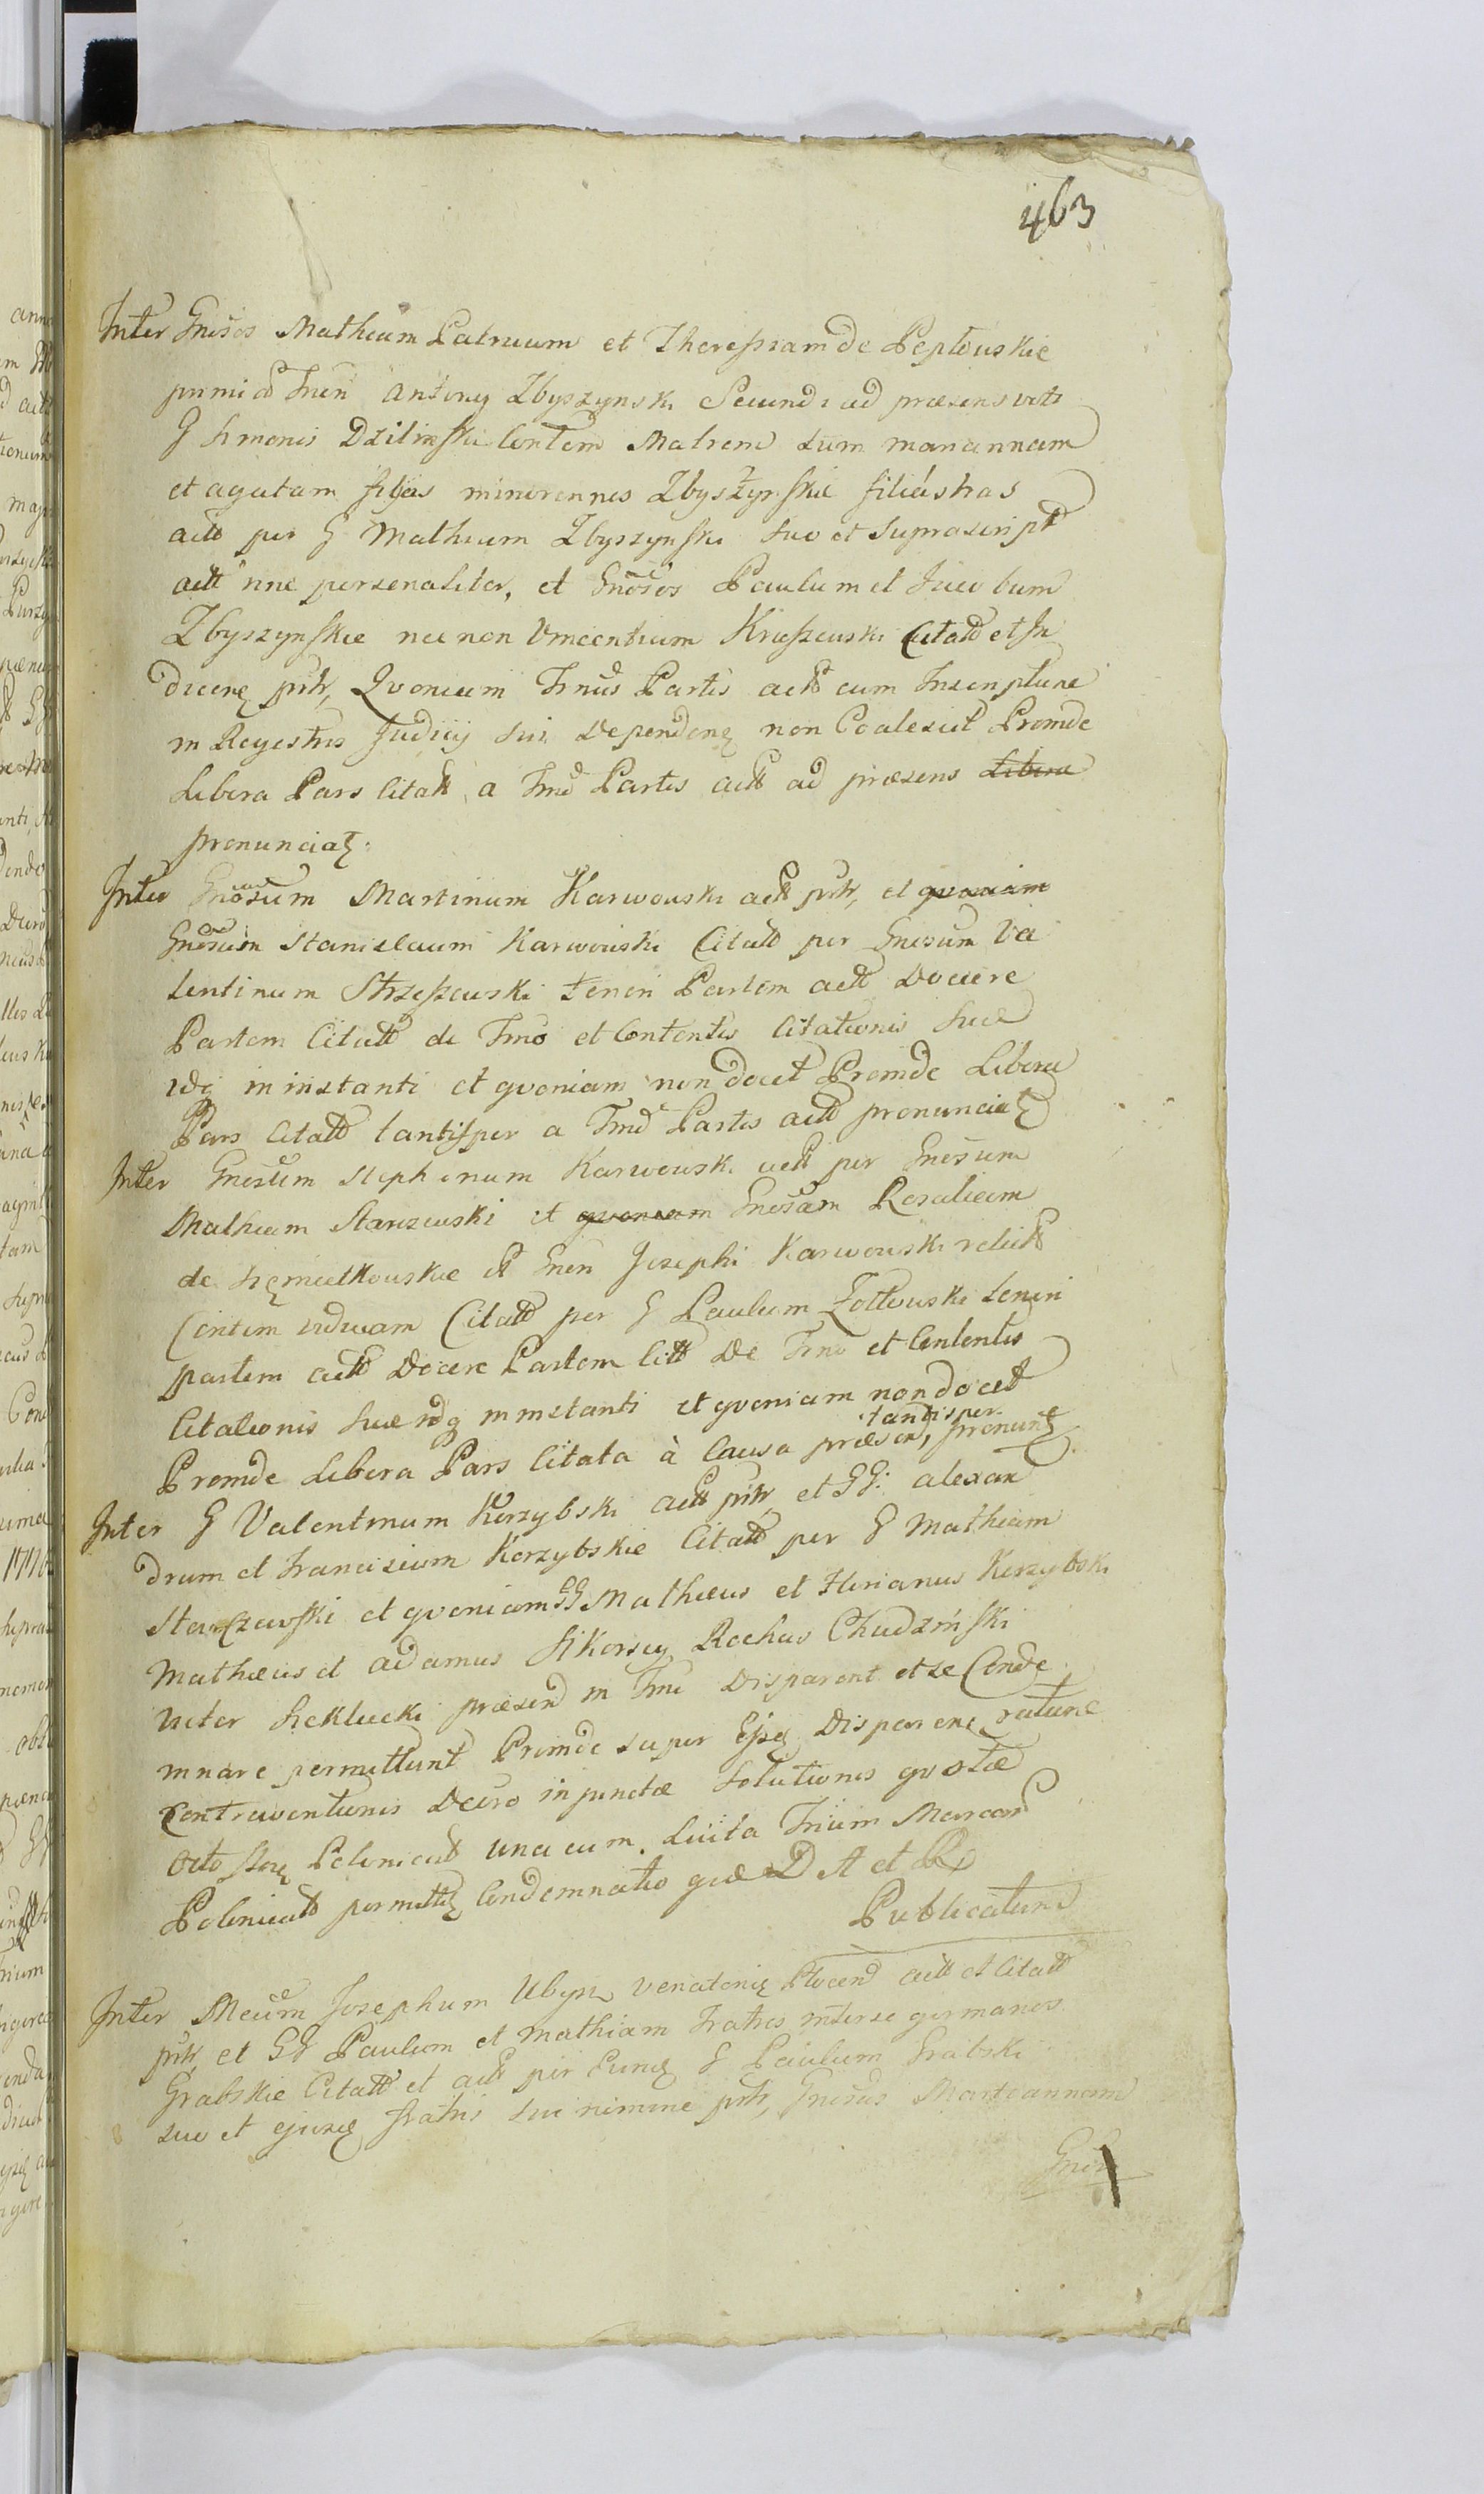 463
Inter Gnēsos Mathæum Patruum et Theressiam de Peptouskie
primi ad Gnen Antony Zbyszynski Secundi ad præsens voti
G Simonis Dzilinski Contem Matrem tum Mariannam
et agatam filjas minorennes Zbyszynskie filiastras
actt per G Mathæum Zbyszynski suo et suprascript
actt nne personaliter, et Gnosos Paulum et Jacobum
Zbyszynskie nec non Vincentium Krieszewski Citatt et In
ducen prtr, Qvoniam Trnus Partis actt cum Inscriptione
in Regestris Judicij sui Dependen non Coalescit Proinde
Libera Pars Citatt a Trno Partis actt ad præsens Libera
pronunciat.
Inter Gnosum Martinum Karwouski actt prtr, et qvoniam
Gnosum Stanislaum Karwouski Citatt per Gnesum Va
lentinum Strzeszewski teneri Partem actt Docere
Partem Citatt de Trno et Contentis Citationis suæ
idq in instanti et qvoniam non docet Proinde Libera
Pars Citatt tantisper a Trno Partis actt pronunciat
Inter Gnesum Stephanum Karwouski actt per Gnesum
Mathæum Starzewski et qvoniam Gnesam Rosaliam
de Sręmietkouskie et Gnen Josephi Karwouski relictt
Contem viduam Citatt per G Paulum Zottouski teneri
partem actt Docere Partem Citt De Trno et Contentis
Citationis suæ idq in instanti et qvoniam non docet
Proinde Libera Pars Citata à Causa præsen, tantisper pronunt
Inter G Valentinum Korzybski actt prtr, et GG: alexan
drum et Franciscum Korzybskie Citatt per G Mathiam
Starczewski et qvoniam GG Mathæus et Florianus Korzybski
Mathæus et adamus Sikorscy Rochus Chudzinski
Victor Seklucki præsen in Trno Disparent et se Conde
mnare permittunt Proinde super Ejsq Disparen ratione
Contraventionis Decreto injunctæ solutionis gvostæ
octo flor Polonicatt una cum Luita Trium Marcar
Polonicatt permittit Condemnatio quæ D A et R
Publicatum
Inter Mcum Josephum Ubysz venatoris Plocen actt et Citatt
prtr et GG Paulum et Mathiam Fratres inter se germanos
Grabskie Citatt et actt per Eunq G Paulum Grabski
suo et ejusq fratris sui nimine prtr, Gnesus Mariannam
Gnēs